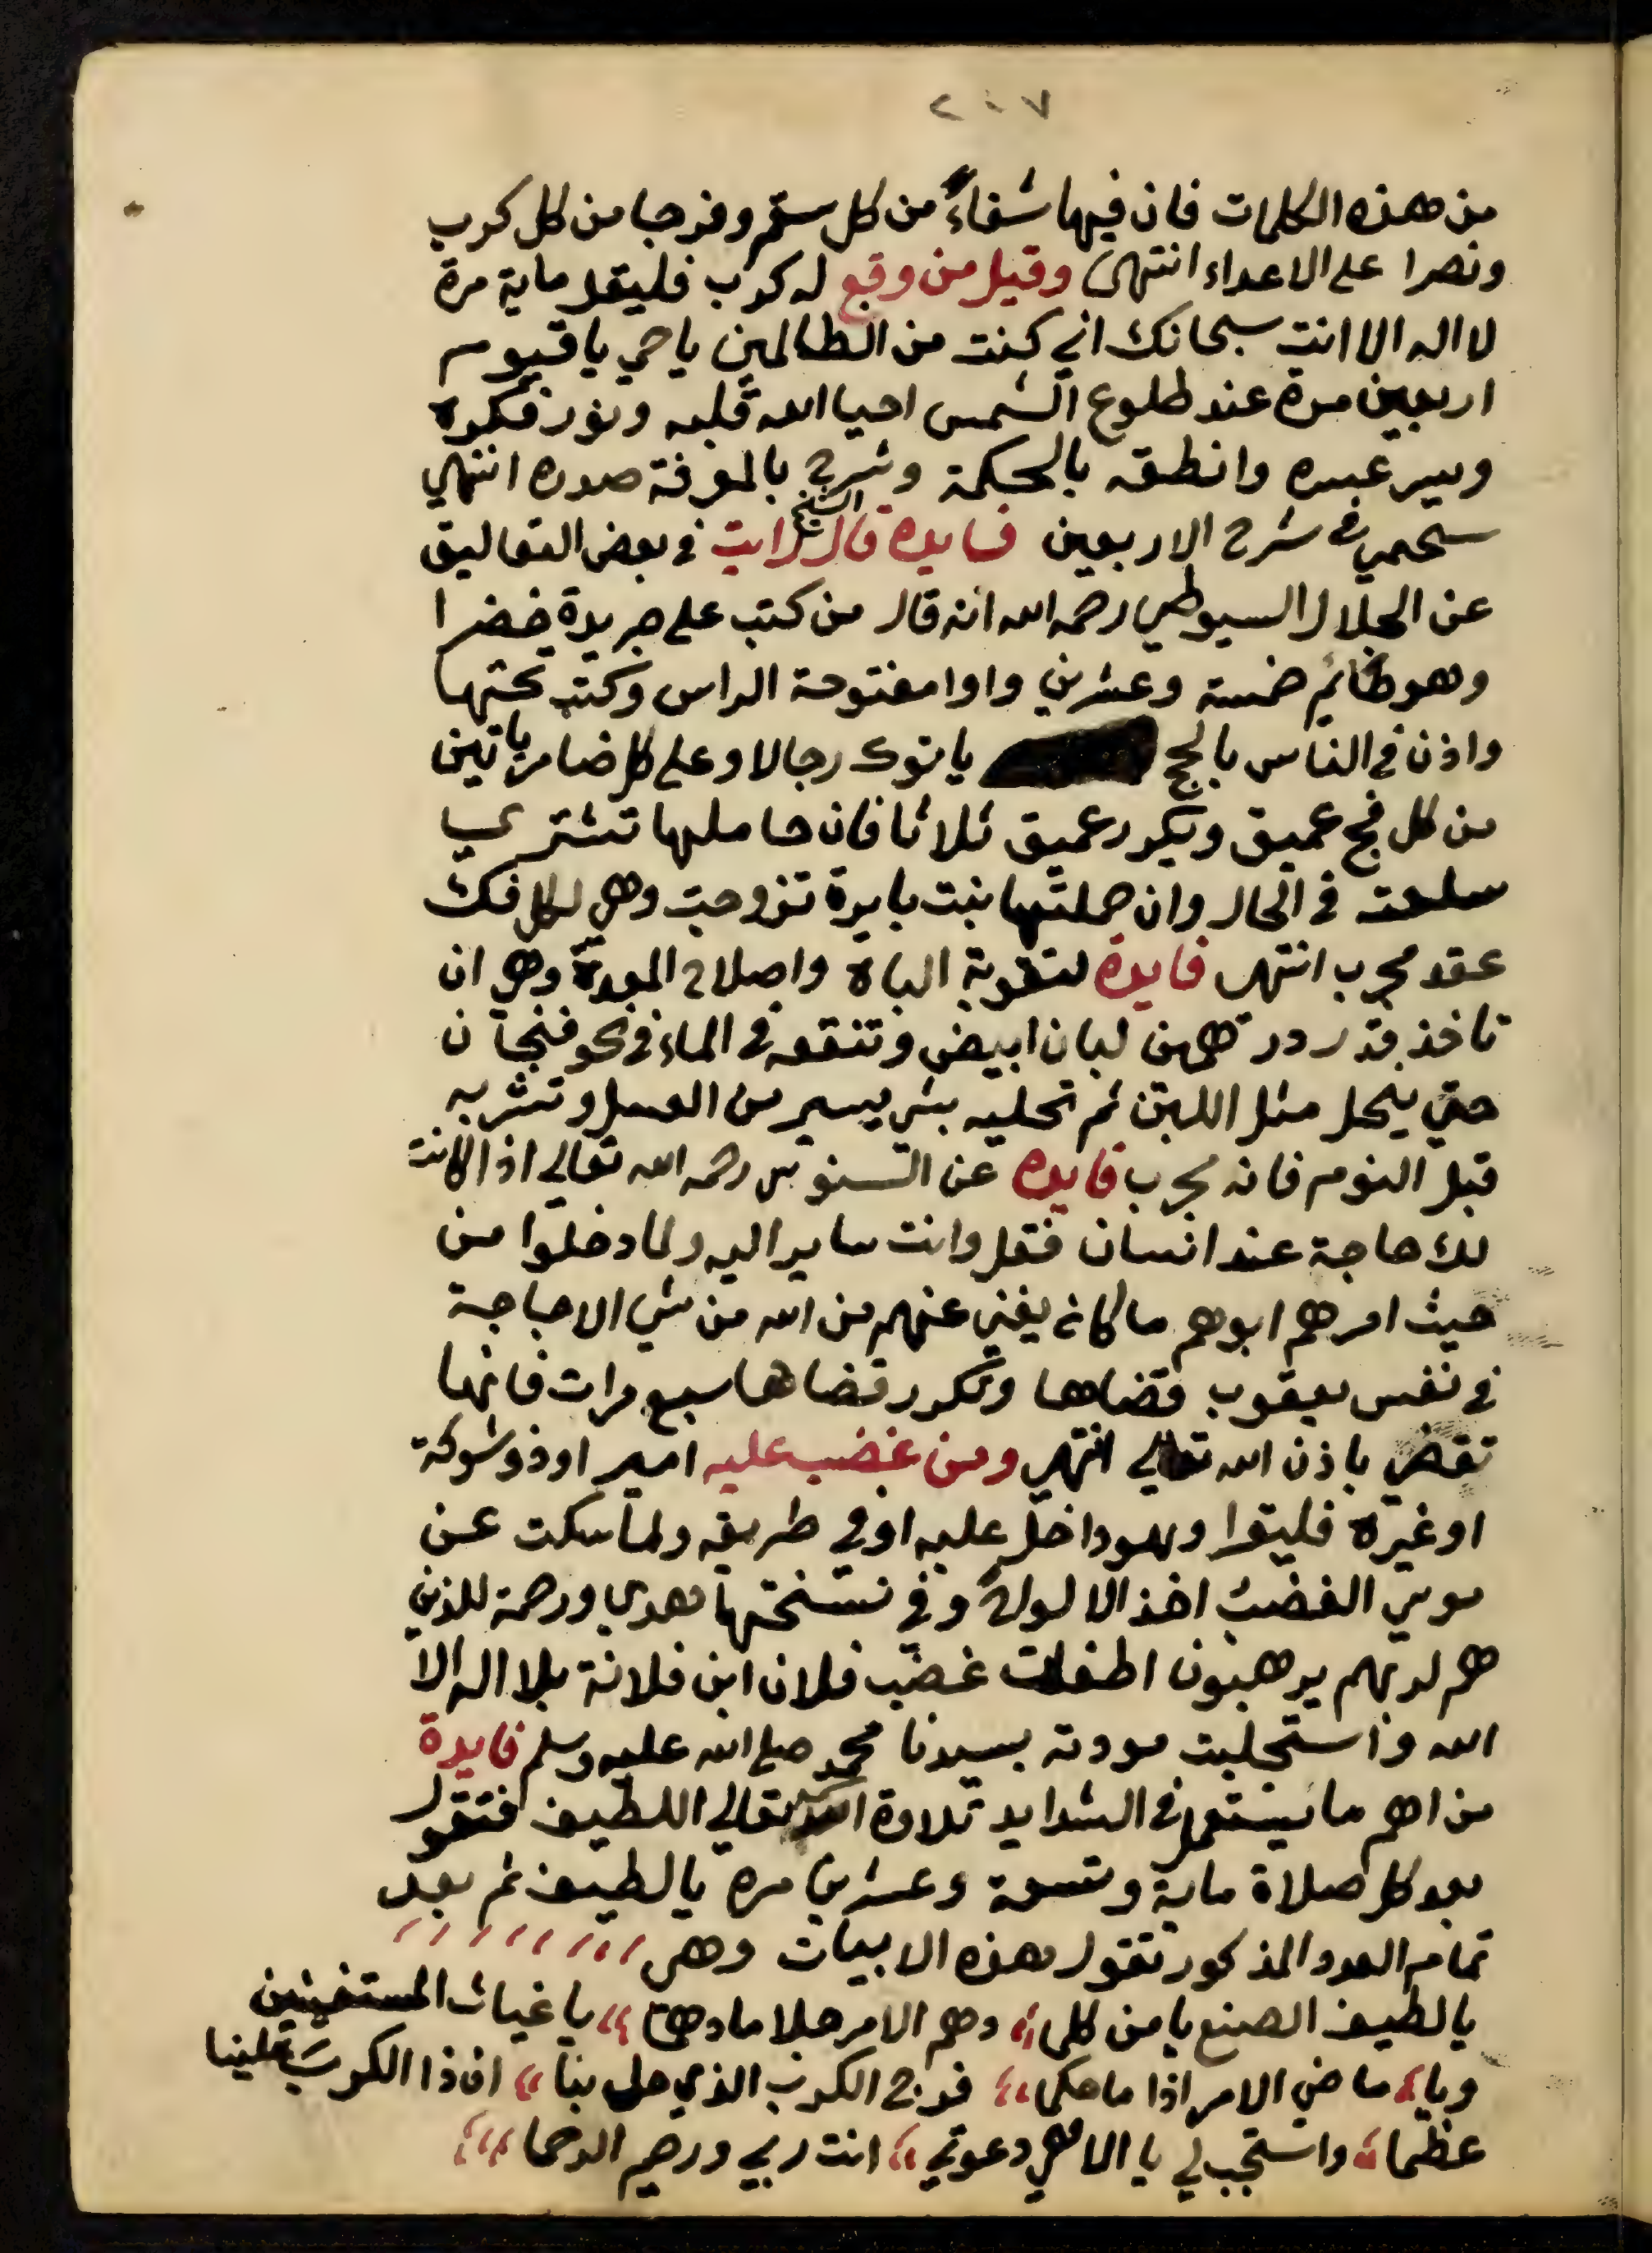 ٢٠٧
من هذه الكلمات فان فيها شفاءً من كل سقم وفرجا من كل كرب
ونصرا على الاعداء انتهى وقيل من وقع له كرب فليقل ماية مرة
لا اله الا انت سبحانك اني كنت من الظالمين يا حي يا قيوم
اربعين مرة عند طلوع الشمس احيا الله قلبه ونور فكره
ويسر عسره وانطقه بالحكمة وشرح بالمعرفة صدره انتهي
سحيمي في شرح الاربعين فايده قال الشيخ رايت في بعض التعاليق
عن الجلال السيوطي رحمه الله انه قال من كتب على جريدة خضرا
وهو صائم خمسة وعشرين واوا مفتوحة الراس وكتب تحتها
واذن في الناس بالحج ياتوك رجالا وعلى كل ضامر ياتين
من كل فج عميق ويكرر عميق ثلاثا فان حاملها تشتري
سلعته في الحال وان حملتها بنت بايرة تزوجت وهي لكل فك
عقد مجرب انتهى فايدة لتقوية الباه واصلاح المعدة وهي ان
تاخذ قدر درهمين لبان ابيض وتنقعه في الماء في نحو فنجان
حتى ينحل مثل اللبن ثم تحليه بشي يسير من العسل وتشربه
قبل النوم فانه مجرب فايده عن السنوسي رحمه الله تعالى اذا كانت
لك حاجة عند انسان فقل وانت ساير اليه ولما دخلوا من
حيث امرهم ابوهم ما كان يغني عنهم من الله من شي الا حاجة
في نفس يعقوب قضاها وتكرر قضاها سبع مرات فانها
تقضي باذن الله تعالي انتهي ومن غضب عليه امير او ذو شوكة
او غيره فليقرا وهو داخل عليه او في طريقه ولما سكت عن
موسي الغضب اخذ الالواح وفي نسختها هدي ورحمة للذين
هم لربهم يرهبون اطفات غضب فلان ابن فلانة بلا اله الا
الله واستجلبت مودته بسيدنا محمد صلى الله عليه وسلم فايدة
من اهم ما يستعمل في الشدايد تلاوة اسمه تعالي اللطيف فتقول
بعد كل صلاة ماية وتسعة وعشرين مره يا لطيف ثم بعد
تمام العدد المذكور تقول هذه الابيات وهي
يا لطيف الصنع يا من كلما دهم الامر جلا ما دهما يا غياث المستغيثين
ويا ماضي الامر اذا ما حكما فرج الكرب الذي حل بنا ان ذا الكرب علينا
عظما واستجب لي يا الاهي دعوتي انت ربي ورحيم الرحما